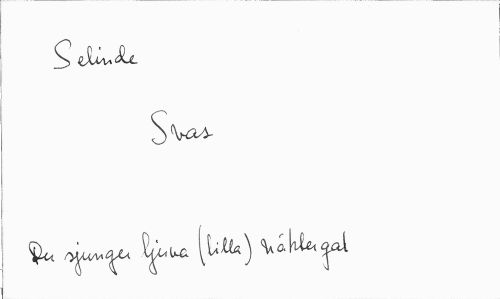 Selinde
Svas
Du sjunger ljuva (lilla) näktergal